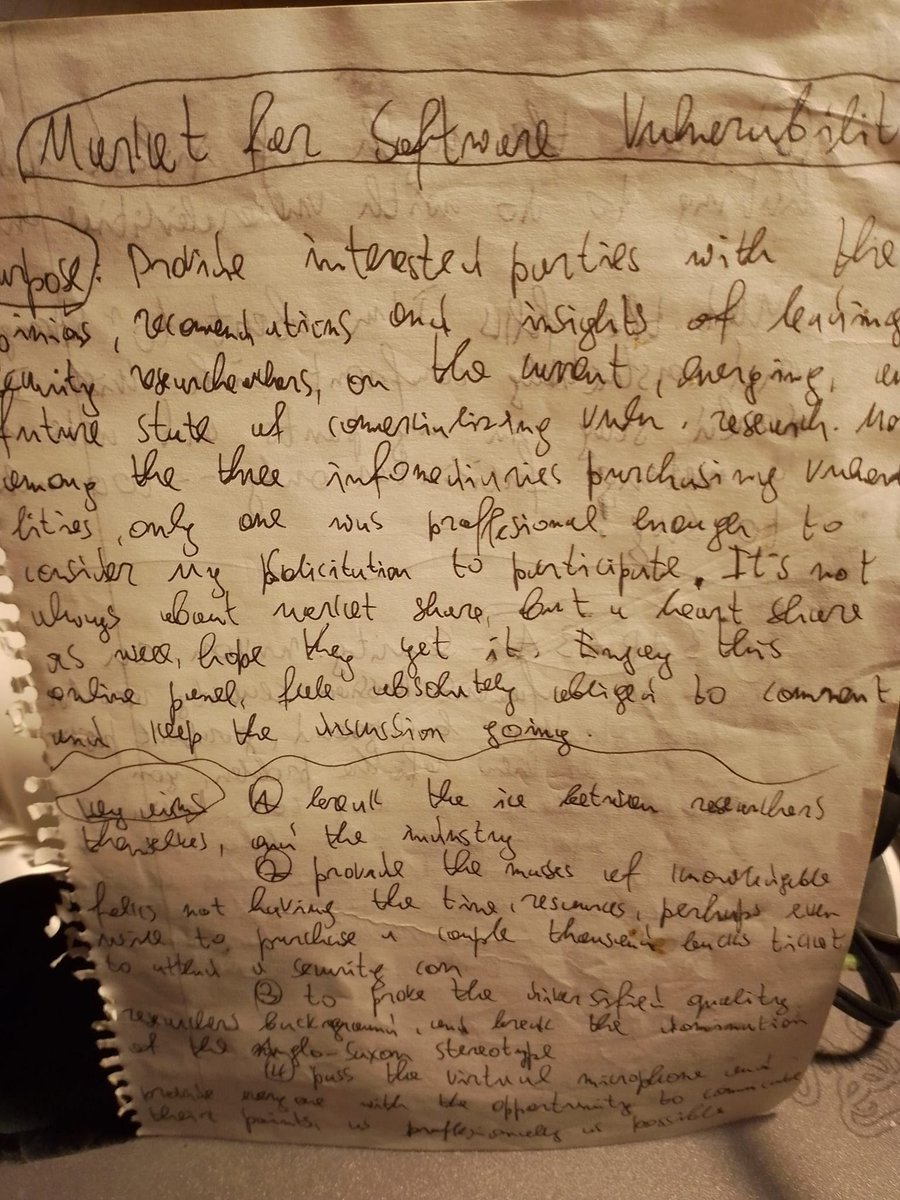 Market for Software Vulnerabilit
urpose: Provide interested parties with the
pinions, recomendations and insights of leading
ecurity researchers, on the current, emerging, an
future state of comercializing vuln. research. No
among the three infomediaries purchasing vulnera
lities, only one was proffesional enough to
consider my solicitation to participate. It's not
always about market share, but a heart share
as well, hope they get it. Enjoy this
online panel, fele absolutely obliged to comment
and keep the discussion going.
Key aims ① break the ice between researchers
themselves, and the industry
② provide the masses of knowledgible
folks not having the time, resources, perhaps even
to purchase a couple thousand bucks ticket
to attend a security con
③ to the diversified quality
researchers background, and break the domination
of the Anglo-Saxon stereotype
(4) pass the virtual microphone and
provide everyone with the opportunity to communicate
their points, as proffesionally as possible